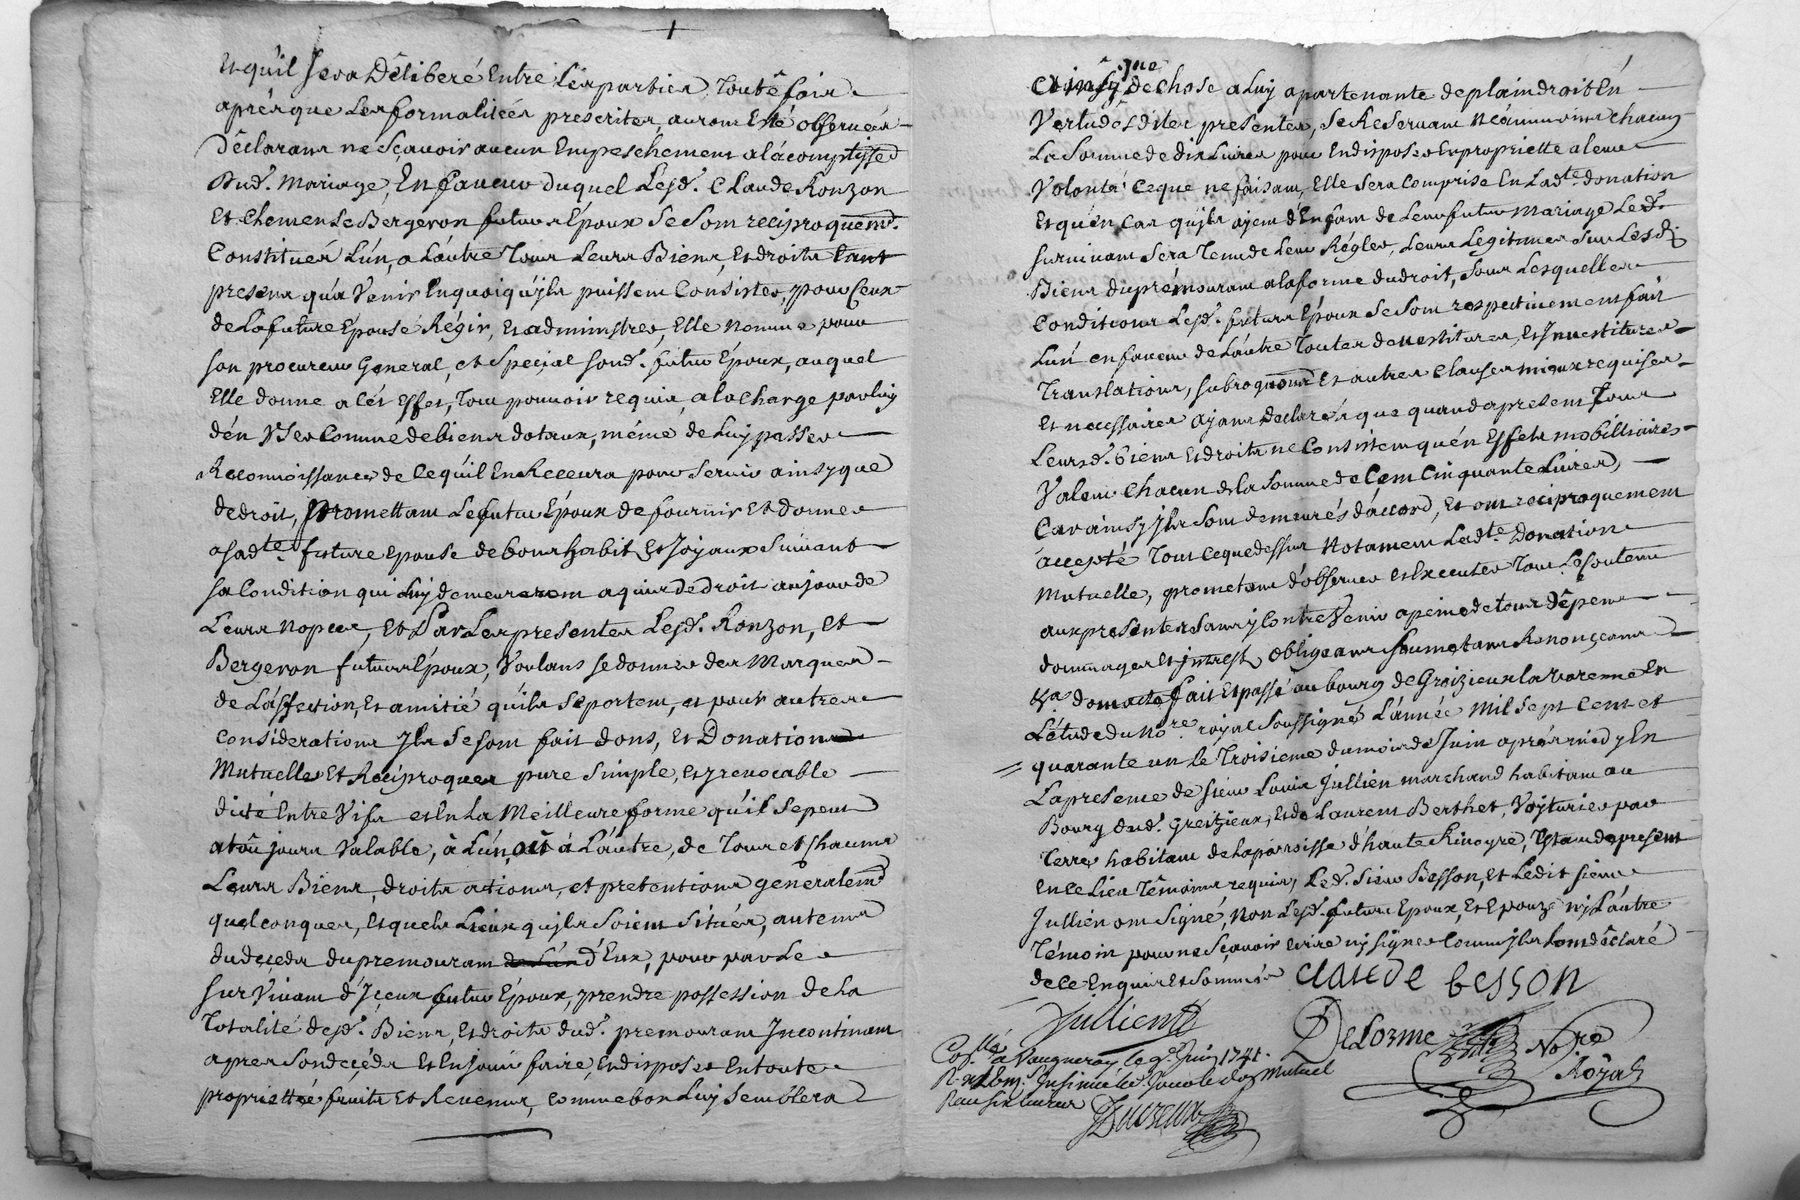 Et qu'il sera Déliberé Entre Les parties, Toutefois
aprés que Les formalitéés prescrites, auront Eté observéés
Déclarant ne sçavoir aucun Empeschement a l'acomplissed
Dud. Mariage, En faveur duquel Lesd. Claude Ronzon
Et Clemense Bergeron futurs Epoux se sont reciproquemt.
Constitués L'ún, a L'autre Tous Leurs Biens, Et droits tant
presens qu'a Venir En quoi qu'yls puissent Consister, pour Ceux
de La future Epouse Régir, Et administrer, Elle nomme pour
son procureur General, et special sond. futur Epoux, auquel
Elle donne a cés Effet, Tout pouvoir requis, a la Charge par luy
d'én Vser Comme de biens dotaux, méme de Luy passer
Reconnoissances de Ce qu'il En Recevra pour servir ainsy que
de droit, Promettant Le futur Epoux de fournir Et donner
a sadte. future Epouse de bons habit Et Joyaux suivant
sa Condition qui Luy demeureront aquis de droit au jour de
Leurs nopces, Et Par Les presentes Lesd. Ronzon, Et
Bergeron futurs Epoux, Voulans se donner des Marques
de L'affection, Et amitié qu'ils se portent, et pour autres
considerations Yls se sont fait dons, Et Donation
Mutuelles Et Reciproques pure simple, Et yrevocable
dicté Entre Vifs et En La Meilleure forme qu'il se peut
a toûjours Valable, à L'ún, oû à L'autre, de Tous et Chacuns
Leurs Biens, droits actions, et pretentions généralemt
quelconques, Et quels Lieux qu'yls soient situés, au tems
du deçeds du premourant d'Eux, pour par Le
survivant d'Yçeux futur Epoux, prendre possession de La
Totalité desd. Biens, Et droits dud. premourant Jncontinant
apres son deçéds Et En jouir faire, Et disposer En toute
propriettéé fruits Et Revenus, comme bon Luy semblera
que
Et insy de Chose a Luy apartenante de plain droit En
Vertu desdites presentes, se Reservant néanmoins Chacun
La Somme de dix Livres pour En disposer En propriette a leur
Volonté Ce que ne faisant, Elle sera Comprise En Ladte. donation
Et qu'en Cas qu'yls ayent d'Enfant de Leur futur Mariage Led.
survivant sera Tenu de Leur Régler, Leurs Legitimes sur Lesd.
Biens du prémourant a la forme du droit, sous Lesquelles
Conditions Lesd. futurs Epoux se sont respectivement fait
L'un en faveur de L'autre Toutes devestitures, Et Jnvestitures
Translations, subrogaons Et autres Clauses mieux requises
Et necessaires ayant declarés que quand a present Tous
Leursd. biens Et droits ne Consistent qu'én Effets mobilliaires
Valeur Chacun de la Somme de Cent Cinquante Livres,
Car ainsy Yls sont demeurés d'accord, Et ont reciproquement
accepté Tout Ce que dessus Notament Ladte. Donation
Mutuelle, prometant d'observer Et Executer Tout Le Contenu
aux presentes sans y Contre Venir a peine de tous dépens
dommages Et jnterest, obligeans soumetans Renonçeans
&a. dont acte fait Et passé au bourg de Greizieux la Varenne En
L'étude du Nore. royal soussigné L'année Mil sept Cent et
quarante un Le Troisieme du mois de Juin aprés midy En
La presence de sieur Louis Jullien marchand habitant au
Bourg dud. Greizieux, Et de Laurent Berthet, Voyturier par
Terre habitant de La parroisse d'haute Rivoyre, Estant de present
En ce Lieu Témoins requis, Led. sieur Besson, Et Ledit sieur
Jullien ont signé, Non Lesd. futurs Epoux, Et Epouze ny L'autre
Témoin pour ne sçavoir ecrire ny signer Comm'yls L'ont déclaré
de Ce Enquis Et Sommés Claude Besson
Jullien
Delorme Nore.
Royal
Collé. a Vaugneray le 9e. Juin 1741.
R. Insinué le don Mutuel
Recu six livres